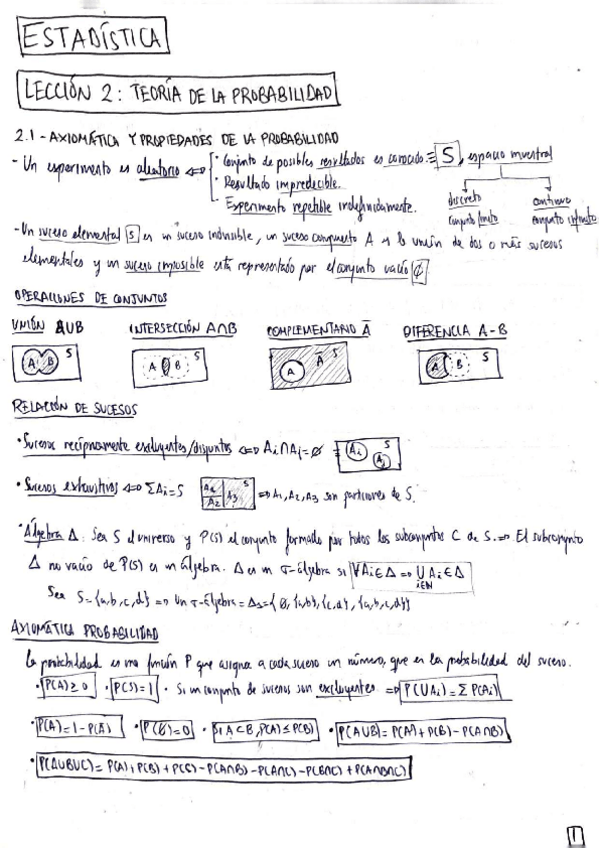 ESTADÍSTICA
LECCIÓN 2: TEORÍA DE LA PROBABILIDAD
2.1 - AXIOMÁTICA Y PROPIEDADES DE LA PROBABILIDAD
- Un experimento es aleatorio ⇔ · Conjunto de posibles resultados es conocido ≡ S, espacio muestral
· Resultado impredecible.
· Experimento repetible indefinidamente.
discreto continuo
conjunto finito conjunto infinito
- Un suceso elemental s es un suceso indivisible, un suceso compuesto A es la unión de dos o más sucesos
elementales y un suceso imposible está representado por el conjunto vacío ∅
OPERACIONES DE CONJUNTOS
UNIÓN AUB INTERSECCIÓN A∩B COMPLEMENTARIO Ā DIFERENCIA A - B
A B S A B S A Ā S A B S
RELACIÓN DE SUCESOS
· Sucesos recíprocamente excluyentes/disjuntos ⇔ Ai∩Aj = ∅ = Ai Aj S
· Sucesos exhaustivos ⇔ ΣAi = S A1 A2 A3 S ⇒ A1, A2, A3 son particiones de S.
· Álgebra Δ: Sea S el universo y P(S) el conjunto formado por todos los subconjuntos C de S. ⇒ El subconjunto
Δ no vacío de P(S) es un álgebra. Δ es un σ-álgebra si ∀Ai∈Δ ⇒ U Ai ∈ Δ
i∈N
Sea S = {a,b,c,d} ⇒ Un σ-álgebra = Δs = {∅, {a,b}, {c,d}, {a,b,c,d}}
AXIOMÁTICA PROBABILIDAD
La probabilidad es una función P que asigna a cada suceso un número, que es la probabilidad del suceso.
· P(A) ≥ 0 · P(S) = 1 · Si un conjunto de sucesos son excluyentes ⇒ P(UAi) = Σ P(Ai)
· P(A) = 1 - P(Ā) · P(∅) = 0 · Si A⊂B, P(A) ≤ P(B) · P(AUB) = P(A) + P(B) - P(A∩B)
· P(AUBUC) = P(A) + P(B) + P(C) - P(A∩B) - P(A∩C) - P(B∩C) + P(A∩B∩C)
1